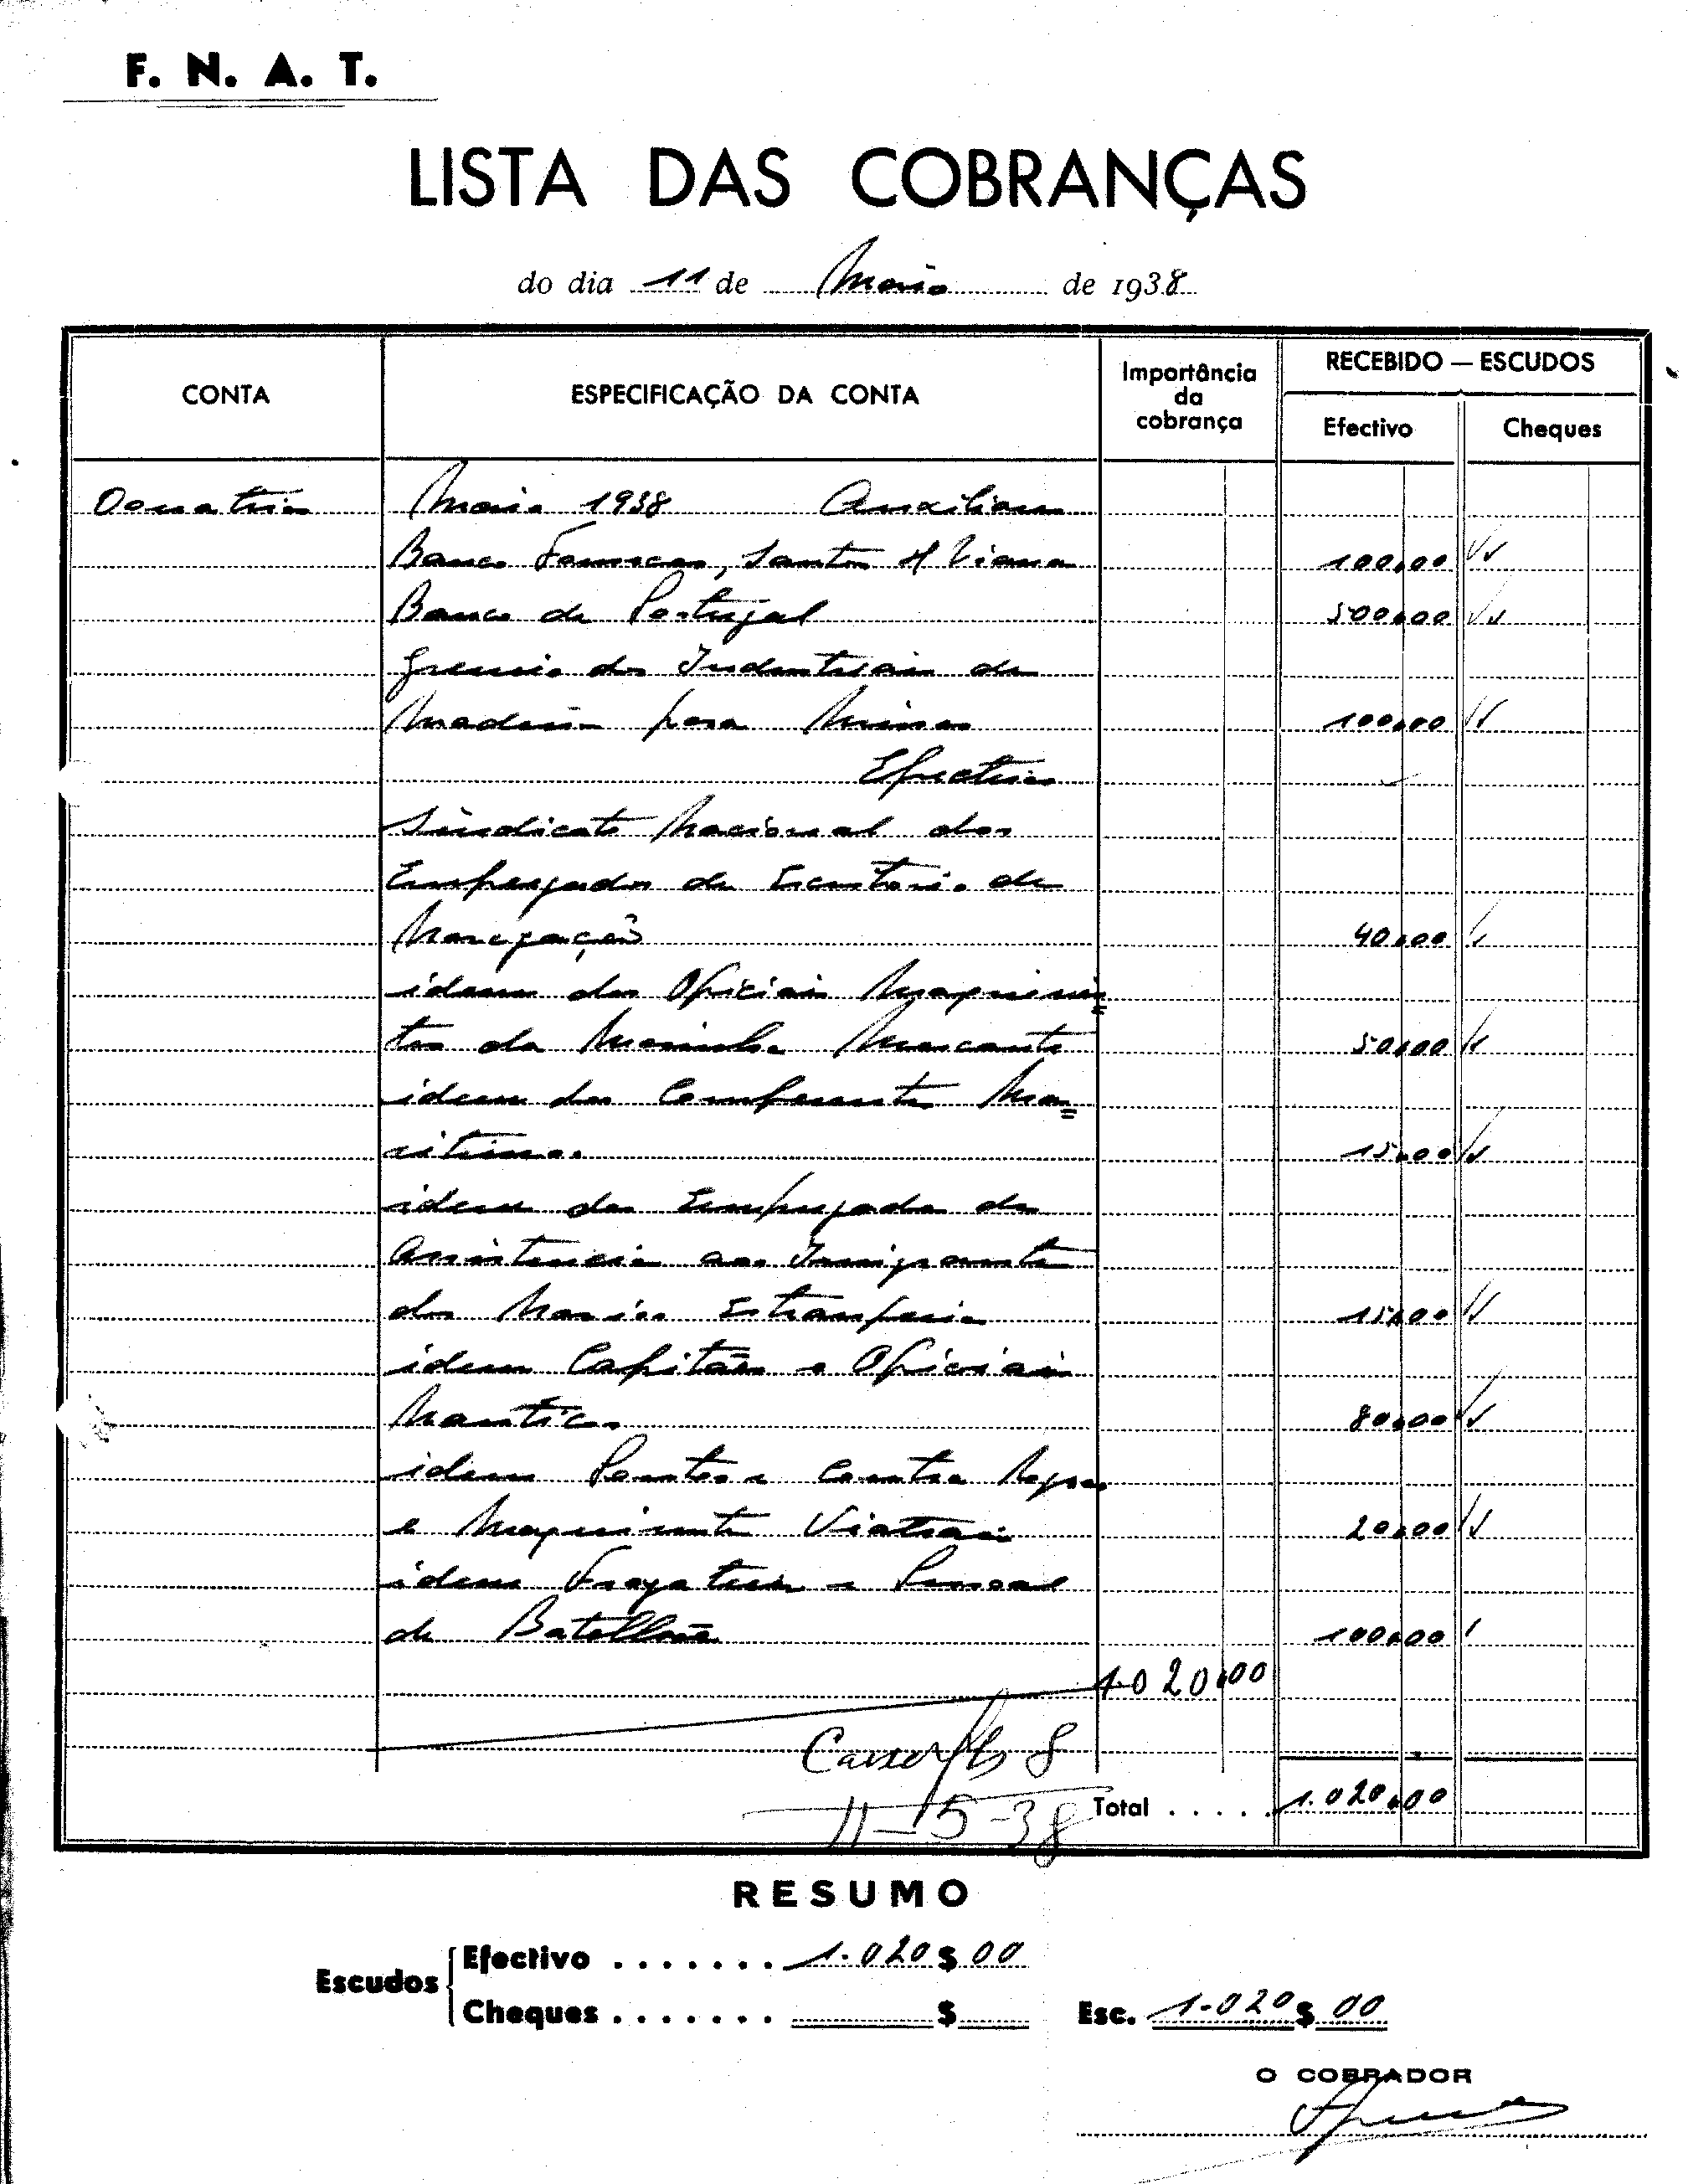 F. N. A. T.
LISTA DAS COBRANÇAS
do dia 11 de Maio de 1938
CONTA
ESPECIFICAÇÃO DA CONTA
Importância
da
cobrança
RECEBIDO — ESCUDOS
Efectivo
Cheques
Maio 1938 Auxiliares
Banco Fonsecas, Santos & Viana 100,00
Banco de Portugal 500,00
Gremio dos Industriais de
Madeira para Minas 100,00
Efectivos
Sindicato Nacional dos
Empregados de Escritorio de
Navegação 40,00
idem dos Oficiais Maquinis=
tas da Marinha Mercante 50,00
idem dos Ma=
ritimos 15,00
idem dos Empregados de
Assistencia aos Imigrantes
dos Navios Estrangeiros 15,00
idem Capitães e Oficiais
Nauticos 80,00
idem Contra
e 20,00
idem Fragateiros e Pessoal
de 100,00
1.020,00
8
11-5-38
Total . . . . . 1.020,00
RESUMO
Escudos
Efectivo . . . . . . . 1.020$00
Cheques . . . . . . . $
Esc. 1.020$00
O COBRADOR